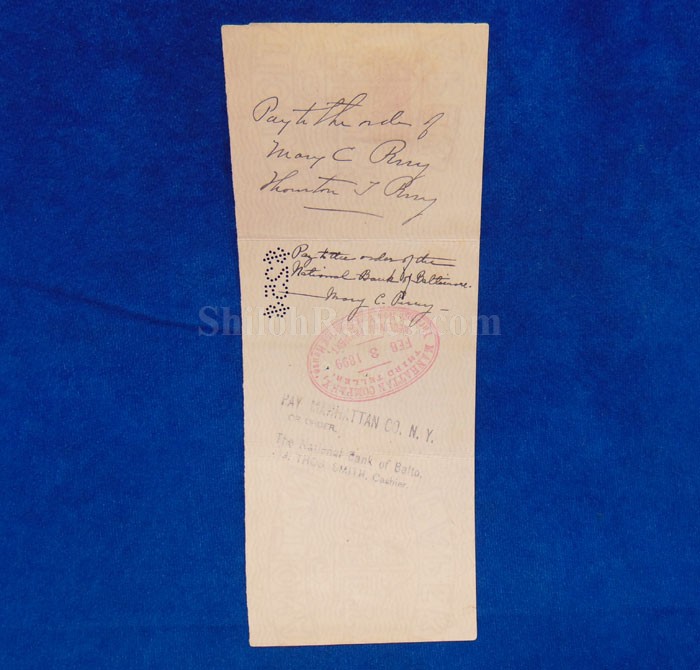 Pay to the order of
Mary C Perry
Thornton T Perry
Pay to the order of the
National Bank of Baltimore.
Mary C. Perry
ShilohRelics.com
MANHATTAN COMPANY
FEB 3 1899
THIRD TELLER.
PAY MANHATTAN CO. N. Y.
OR ORDER,
The National Bank of Balto.
THOS. SMITH, Cashier.